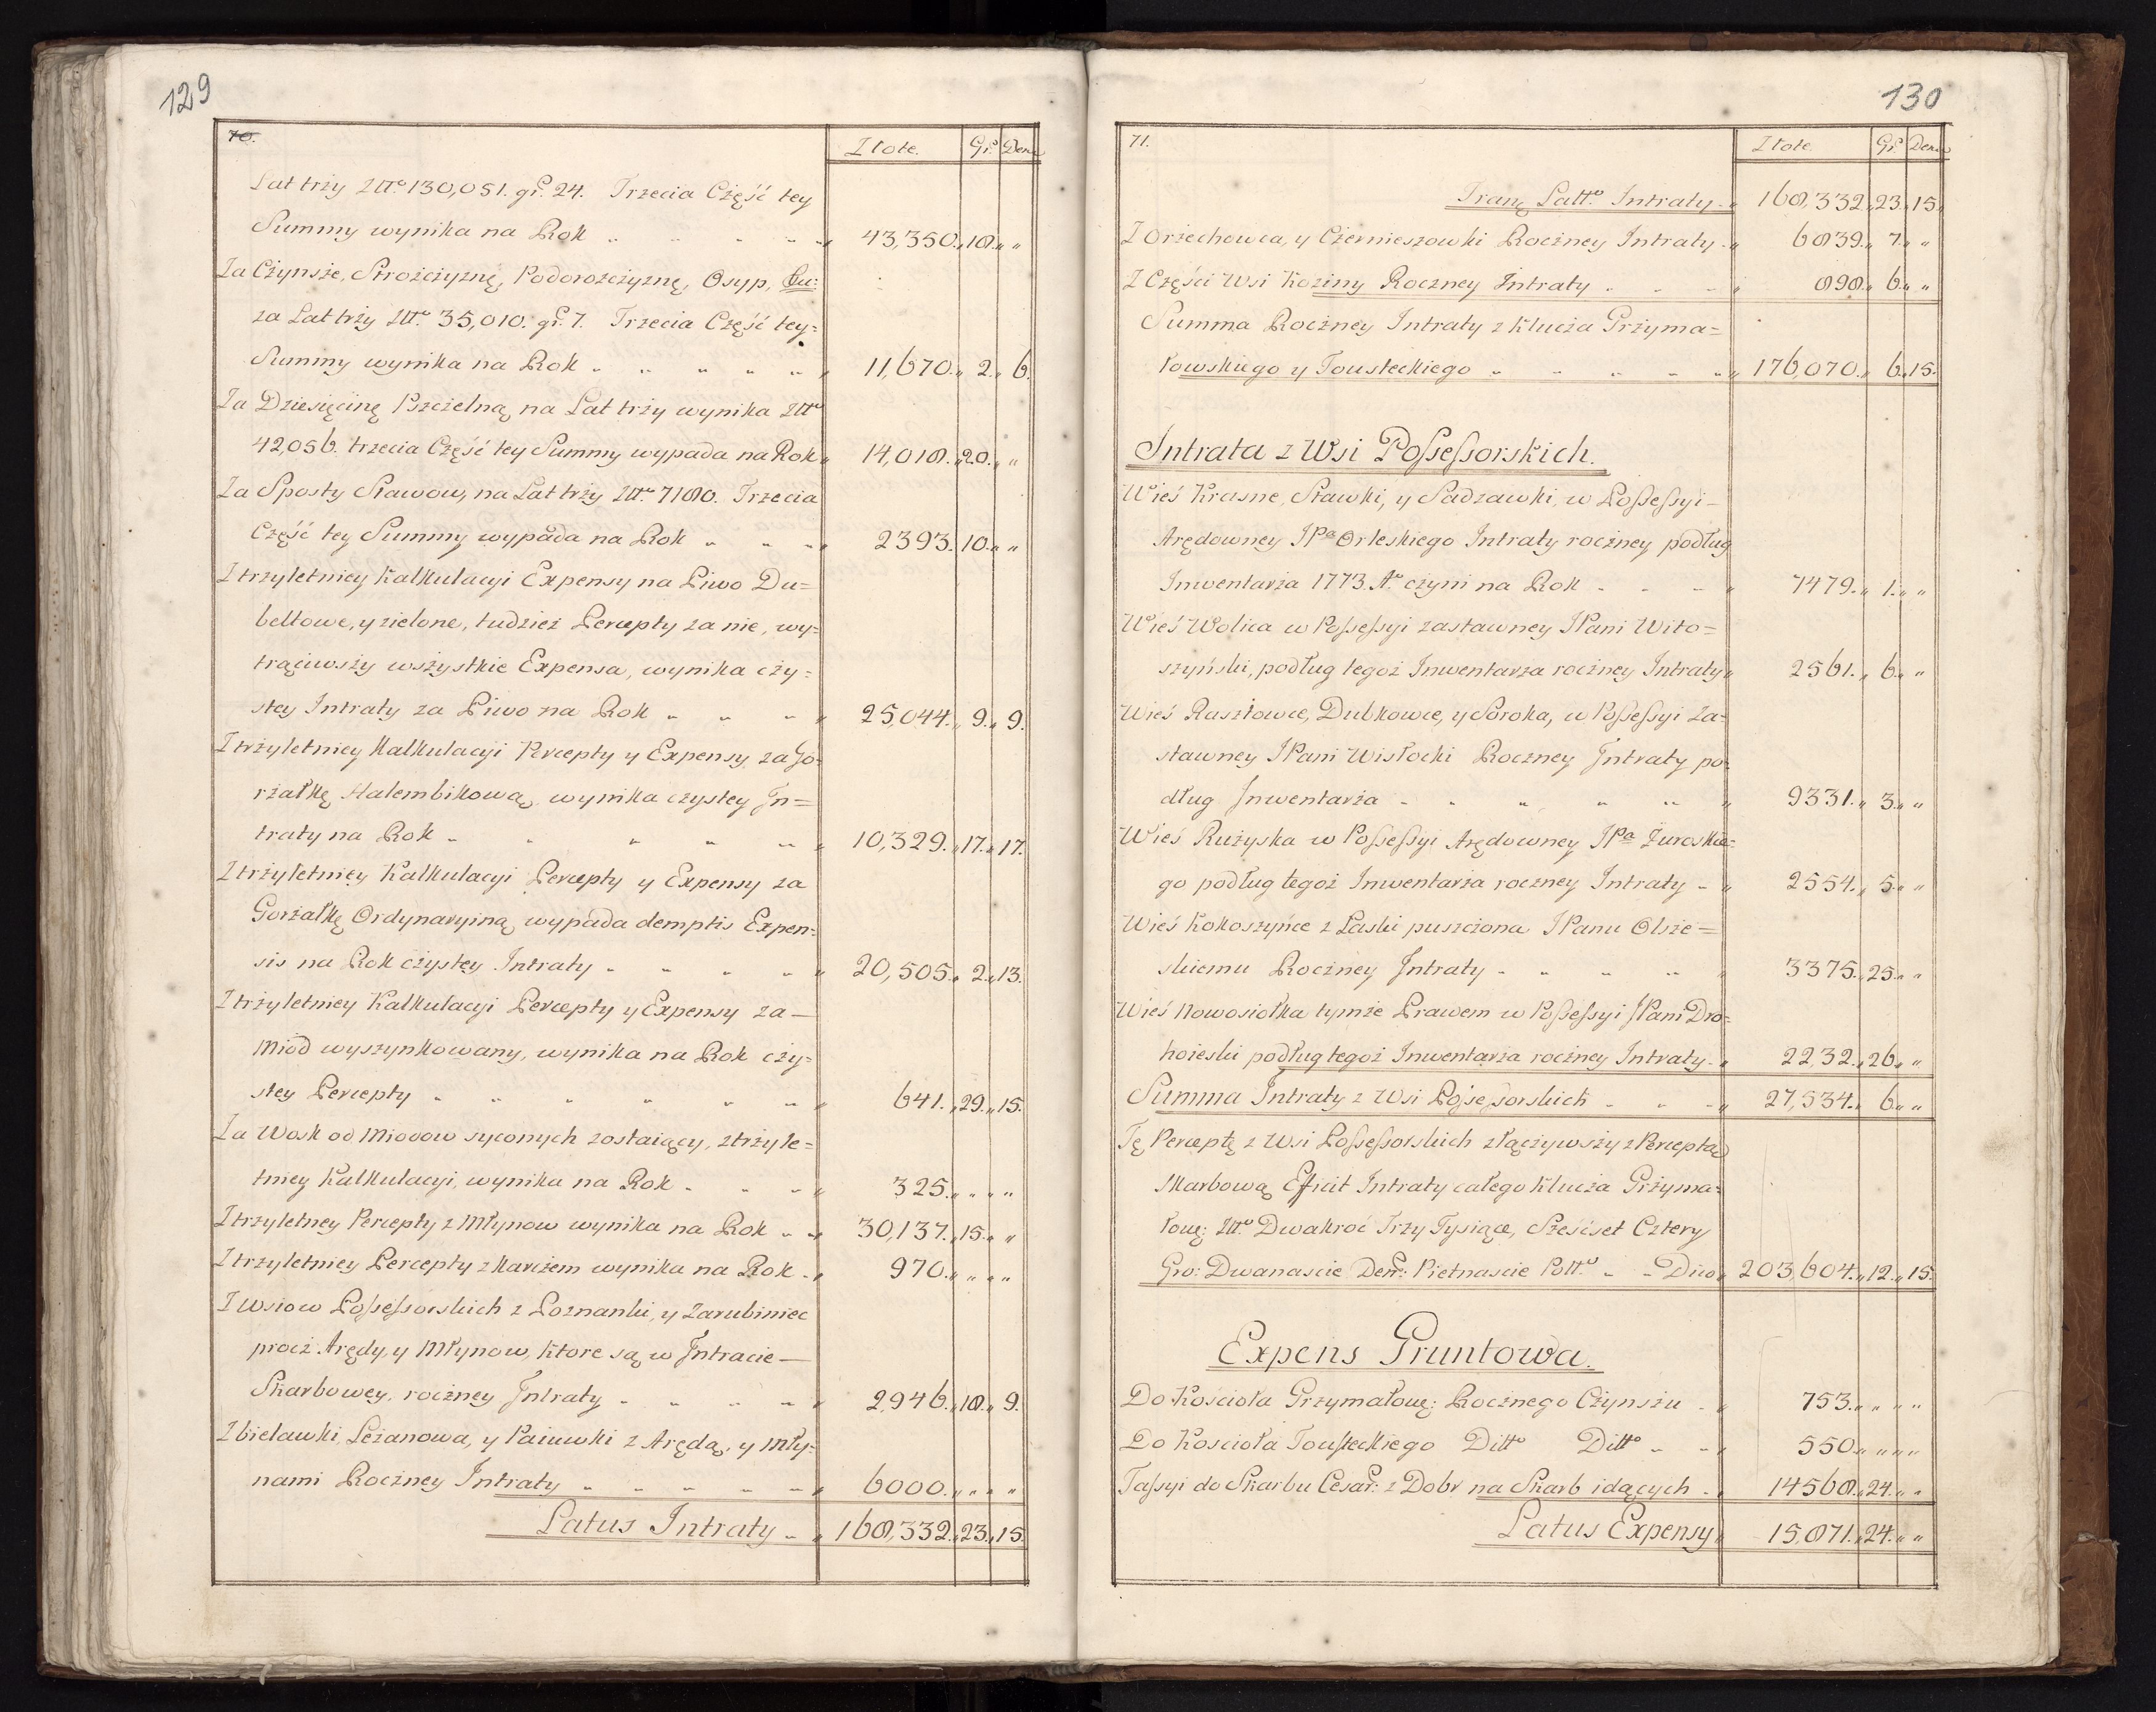 129
70.
Złote. Gr. Dena
Lat trzy Złto 130,051. gr. 24. Trzecia Część tey
Summy wynika na Rok 43,350. 18. "
Za Czynsze, Strożczyznę, Podorożczyznę, Osyp, &u:
za Lat trzy Złto 35,010. gr. 7. Trzecia Część tey=
Summy wynika na Rok 11,670. 2. 6.
Za Dziesięcinę Pszczelną na Lat trzy wynika Złto
42,056. trzecia Część tey Summy wypada na Rok 14,018. 20. "
Za Sposty Stawow, na Lat trzy Złto 7180. Trzecia
Część tey Summy wypada na Rok 2393. 10. "
Z trzyletniey Kalkulacyi Expensy na Piwo Du=
beltowe, y zielone, tudziez Percepty za nie, wy=
trąciwszy wszystkie Expensa, wynika czy=
stey Intraty za Piwo na Rok 25,044. 9. 9.
Z trzyletniey Kalkulacyi Percepty y Expensy za Go=
rzałkę Halembikową wynika czystey In=
traty na Rok 10,329. 17. 17.
Z trzyletniey Kalkulacyi Percepty y Expensy za
Gorzałkę Ordynaryiną wypada demptis Expen=
sis na Rok czystey Intraty 20,505. 2. 13.
Z trzyletniey Kalkulacyi Percepty y Expensy za—
Miod wyszynkowany, wynika na Rok czy=
stey Percepty 641. 29. 15.
Za Wosk od Miodow syconych zostaiący, z trzyle=
tniey Kalkulacyi, wynika na Rok 325. " "
Z trzyletney Percepty z Młynow wynika na Rok 30,137. 15. "
Z trzyletniey Percepty z Karczem wynika na Rok 970. " "
Z Wsiow Possessorskich z Poznanki, y Zarubiniec
procz Arędy, y Młynow, ktore są w Intracie—
Skarbowey, roczney Intraty 2,946. 18. 9.
Z bielawki, Leżanowa, y Paiuwki z Arędą, y Mły=
nami Roczney Intraty 6000. " "
Latus Intraty 168,332. 23. 15.
130
71.
Złote. Gr. Dena
Tranſ Latto Intraty 168,332. 23. 15.
Z Orzechowca, y Czernieszowki Roczney Intraty 6839. 7. "
Z Części Wsi Koziny Roczney Intraty 898. 6. "
Summa Roczney Intraty z Klucza Grzyma=
łowskiego y Tousteckiego 176,070. 6. 15.
Intrata z Wsi Possessorskich.
Wieś Krasne, Stawki, y Sadzawki, w Possessyi—
Arędowney JPa Orleskiego Intraty roczney podług
Inwentarza 1773. Ao czyni na Rok 7479. 1. "
Wieś Wolica w Possessyi zastawney JPani Wito=
szyński, podług tegoż Inwentarza roczney Intraty 2561. 6. "
Wieś Rasztowce, Dubkowce, y Soroka, w Possessyi za=
stawney JPani Wisłocki Roczney Intraty po=
dług Inwentarza 9331. 3. "
Wieś Rużyska w Possessyi Arędowney JPa Żurowskie=
go podług tegoż Inwentarza roczney Intraty 2554. 5. "
Wieś Kokoszyńce z Łaski puszczona JPanu Olsze=
skiemu Roczney Intraty 3375. 25. "
Wieś Nowosiołka tymże Prawem w Possessyi JPani Dro=
hoieski podług tegoż Inwentarza roczney Intraty 2232. 26. "
Summa Intraty z Wsi Possessorskich 27,534. 6. "
Tę Perceptę z Wsi Possessorskich złączywszy z Perceptą
Skarbową Efficit Intraty całego Klucza Grzyma=
łow: Złto Dwakroć Trzy Tysiące, Sześćset Cztery
Gro: Dwanascie Den: Pietnascie Pollo Dico 203,604. 12. 15.
Expens Gruntowa.
Do Kościoła Grzymałow: Rocznego Czynszu 753. " "
Do Kościoła Tousteckiego Ditto Ditto 550. " "
Fassyi do Skarbu Cesar: z Dobr na Skarb idących 14568. 24. "
Latus Expensy 15,871. 24. "